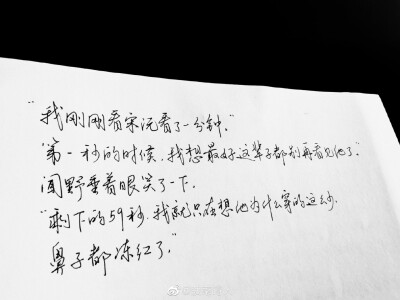 "我刚刚看宋沅看了一分钟。"
第一秒的时候,我想最好这辈子都别再看见他了。
闻野垂着眼笑了一下.
"剩下的59秒.我就只在想他为什么穿的这么少.
鼻子都冻红了。"